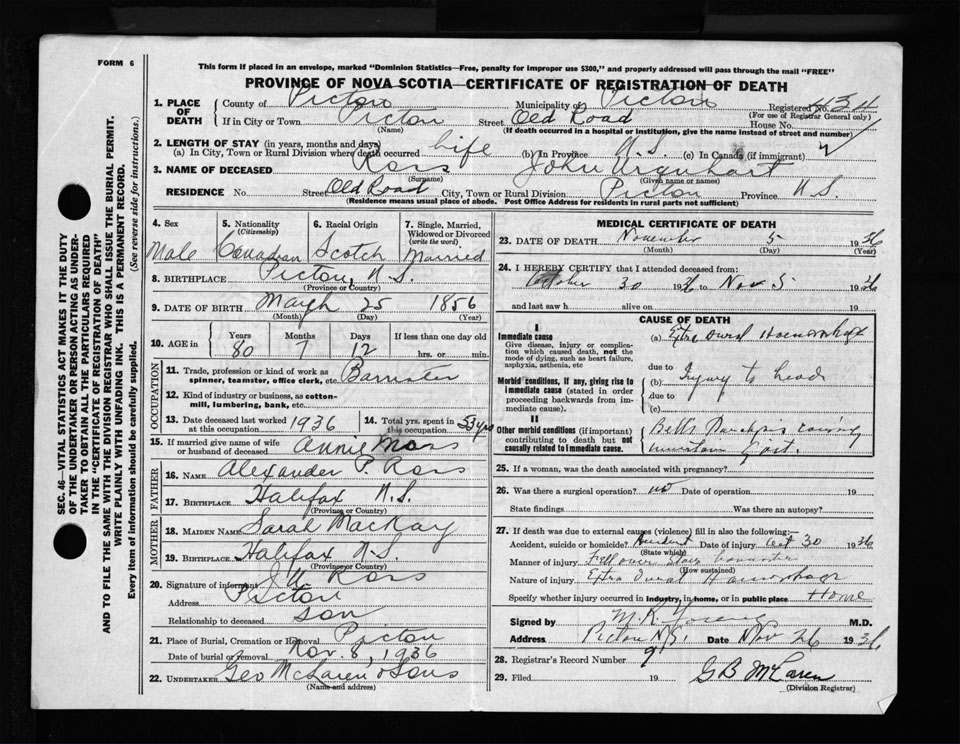 FORM 6
This form if placed in an envelope, marked "Dominion Statistics—Free, penalty for improper use $300," and properly addressed will pass through the mail "FREE"
PROVINCE OF NOVA SCOTIA—CERTIFICATE OF REGISTRATION OF DEATH
1. PLACE OF DEATH County of Pictou Municipality of Pictou Registered No. 434
(For use of Registrar General only)
If in City or Town Pictou Street Old Road House No.
(Name) (If death occurred in a hospital or institution, give the name instead of street and number)
2. LENGTH OF STAY (in years, months and days)
(a) In City, Town or Rural Division where death occurred life (b) In Province N.S. (c) In Canada (if immigrant)
3. NAME OF DECEASED Ross John Urquhart
(Surname) (Given name or names)
RESIDENCE No. Street Old Road City, Town or Rural Division Pictou Province N.S.
(Residence means usual place of abode. Post Office Address for residents in rural parts not sufficient)
SEC. 46—VITAL STATISTICS ACT MAKES IT THE DUTY
OF THE UNDERTAKER OR PERSON ACTING AS UNDER-
TAKER TO OBTAIN ALL THE PARTICULARS REQUIRED
IN THE "CERTIFICATE OF REGISTRATION OF DEATH"
AND TO FILE THE SAME WITH THE DIVISION REGISTRAR WHO SHALL ISSUE THE BURIAL PERMIT.
WRITE PLAINLY WITH UNFADING INK. THIS IS A PERMANENT RECORD.
Every item of information should be carefully supplied. (See reverse side for instructions.)
4. Sex 5. Nationality (Citizenship) 6. Racial Origin 7. Single, Married, Widowed or Divorced (write the word)
Male Canadian Scotch Married
8. BIRTHPLACE Pictou, N.S.
(Province or Country)
9. DATE OF BIRTH March 25 1856
(Month) (Day) (Year)
10. AGE in Years Months Days If less than one day old
80 7 12 hrs. or min.
OCCUPATION
11. Trade, profession or kind of work as spinner, teamster, office clerk, etc. Barrister
12. Kind of industry or business, as cotton-mill, lumbering, bank, etc.
13. Date deceased last worked at this occupation 1936 14. Total yrs. spent in this occupation 53 yrs
15. If married give name of wife or husband of deceased Annie
FATHER
16. Name Alexander P Ross
17. Birthplace Halifax N.S.
(Province or Country)
MOTHER
18. Maiden Name Sarah MacKay
19. Birthplace Halifax N.S.
(Province or Country)
20. Signature of informant Ross
Address Pictou
Relationship to deceased son
21. Place of Burial, Cremation or Removal Pictou
Date of burial or removal Nov. 8, 1936
22. UNDERTAKER Geo McLaren & Sons
(Name and address)
MEDICAL CERTIFICATE OF DEATH
23. DATE OF DEATH November 5 1936
(Month) (Day) (Year)
24. I HEREBY CERTIFY that I attended deceased from:
October 30 1936 to Nov 5 1936
and last saw h alive on 19
CAUSE OF DEATH
I
Immediate cause
Give disease, injury or complication which caused death, not the mode of dying, such as heart failure, asphyxia, asthenia, etc
(a) Extra Dural Haemorrhage
due to
Morbid conditions, if any, giving rise to immediate cause (stated in order proceeding backwards from immediate cause).
(b) Injury to head
due to
(c)
II
Other morbid conditions (if important) contributing to death but not causally related to immediate cause.
Bell's Paralysis causing uncertain gait.
25. If a woman, was the death associated with pregnancy?
26. Was there a surgical operation? no Date of operation 19
State findings Was there an autopsy?
27. If death was due to external causes (violence) fill in also the following:—
Accident, suicide or homicide? Accident Date of injury Oct 30 1936
(State which)
Manner of injury Fell over
(How sustained)
Nature of injury Extra Dural Haemorrhage
Specify whether injury occurred in industry, in home, or in public place Home
Signed by M.R. Young M.D.
Address Pictou N.S. Date Nov 26 1936
28. Registrar's Record Number 9
29. Filed 19 G B McLaren
(Division Registrar)